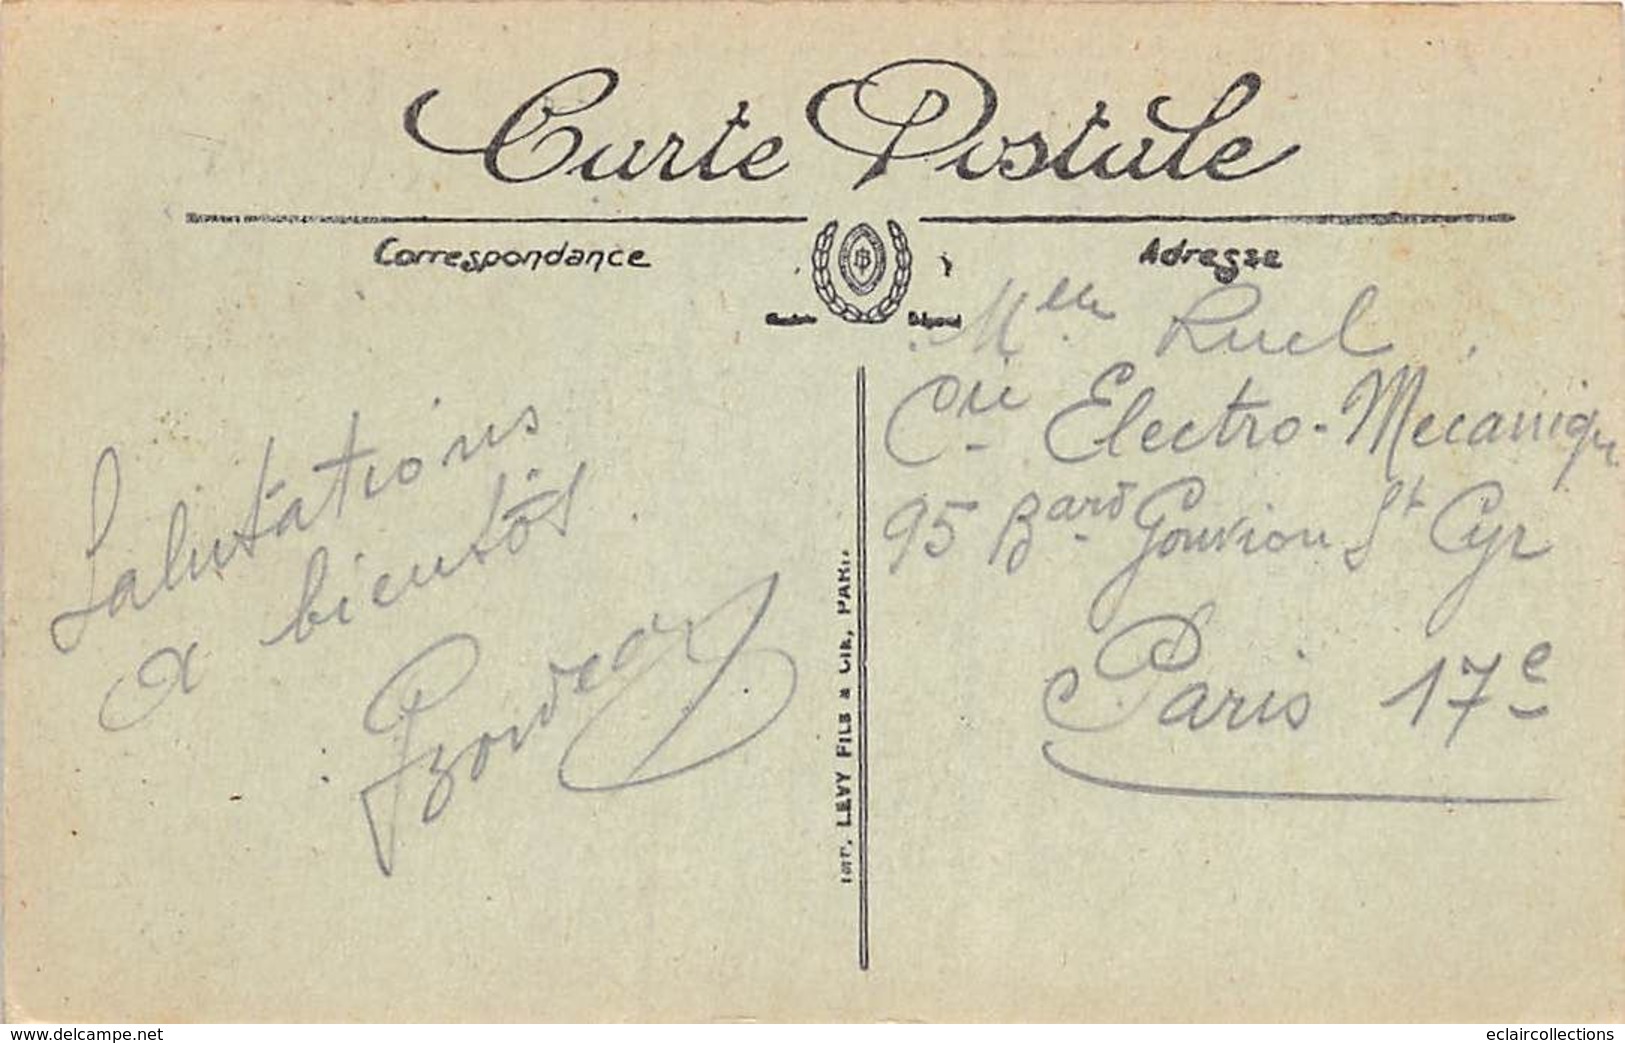 Carte Postale
Correspondance
Adresse
Salutations
a bientôt
Melle Ruel
Cie Electro-Mecanique
95 Bard Gouvion St Cyr
Paris 17e
IMP. LEVY FILS & CIE, PARIS
www.delcampe.net
eclaircollections